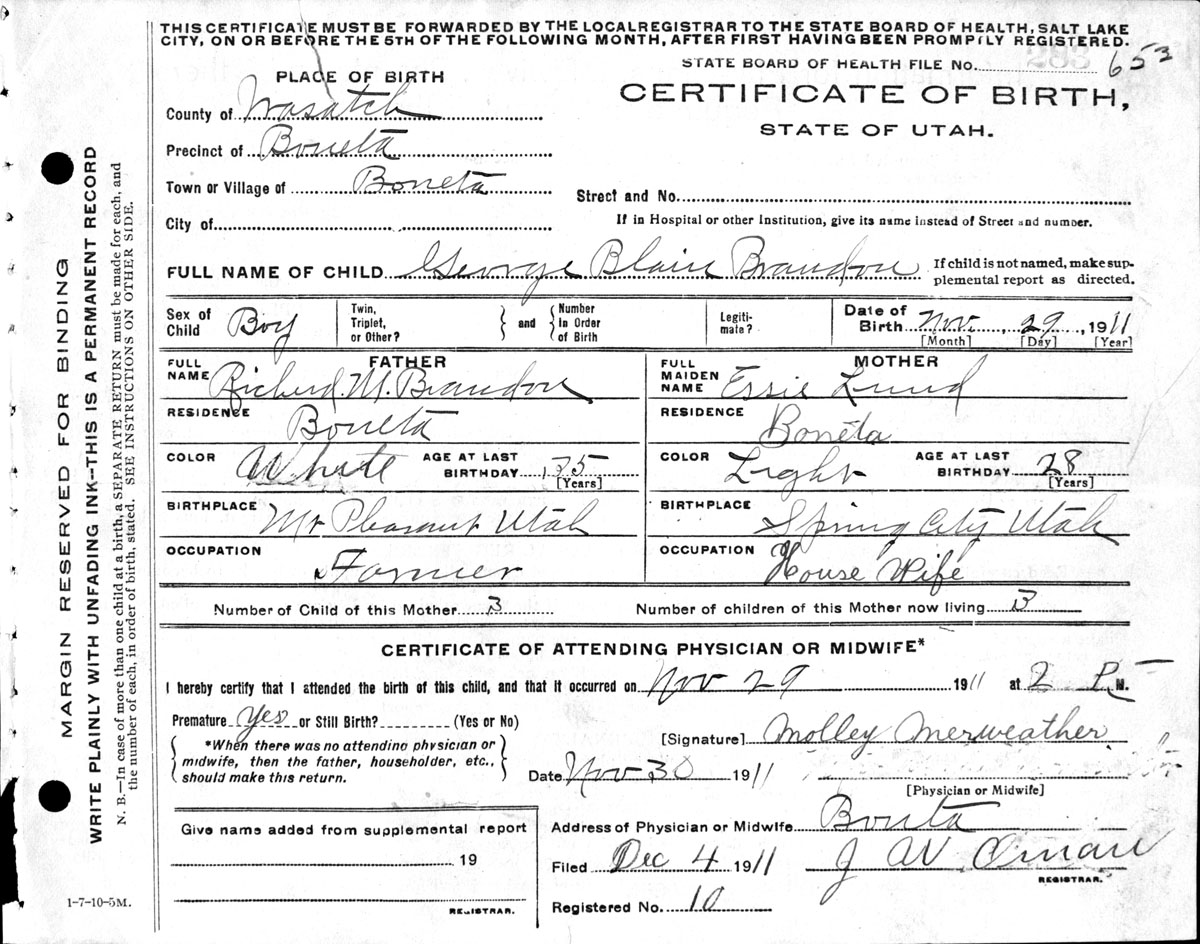 THIS CERTIFICATE MUST BE FORWARDED BY THE LOCAL REGISTRAR TO THE STATE BOARD OF HEALTH, SALT LAKE
CITY, ON OR BEFORE THE 5TH OF THE FOLLOWING MONTH, AFTER FIRST HAVING BEEN PROMPTLY REGISTERED.
STATE BOARD OF HEALTH FILE NO. 293 653
PLACE OF BIRTH
CERTIFICATE OF BIRTH,
STATE OF UTAH.
County of Wasatch
Precinct of Boneta
Town or Village of Boneta
Street and No.
City of
If in Hospital or other Institution, give its name instead of Street and number.
FULL NAME OF CHILD George Blain Brandon
If child is not named, make sup-
plemental report as directed.
Sex of Child Boy
Twin, Triplet, or Other?
and
Number In Order of Birth
Legiti-
mate?
Date of Birth Nov. 29, 1911
[Month] [Day] [Year]
FATHER
FULL NAME Richerd. M. Brandon
RESIDENCE Boneta
COLOR White
AGE AT LAST BIRTHDAY 35
[Years]
BIRTHPLACE Mt Pleasant Utah
OCCUPATION Farmer
MOTHER
FULL MAIDEN NAME Essie Lund
RESIDENCE Boneta
COLOR Light
AGE AT LAST BIRTHDAY 28
[Years]
BIRTHPLACE Spring City Utah
OCCUPATION House Wife
Number of Child of this Mother 3
Number of children of this Mother now living 3
CERTIFICATE OF ATTENDING PHYSICIAN OR MIDWIFE*
I hereby certify that I attended the birth of this child, and that it occurred on Nov 29 1911 at 2 P M.
Premature Yes or Still Birth? (Yes or No)
*When there was no attending physician or
midwife, then the father, householder, etc.,
should make this return.
[Signature] Molley Merweather
Date Nov 30 1911
[Physician or Midwife]
Give name added from supplemental report
19
REGISTRAR.
Address of Physician or Midwife Bonta
Filed Dec 4 1911
J W Oman
REGISTRAR.
Registered No. 10
1-7-10-5M.
MARGIN RESERVED FOR BINDING
WRITE PLAINLY WITH UNFADING INK—THIS IS A PERMANENT RECORD
N. B.—In case of more than one child at a birth, a SEPARATE RETURN must be made for each, and
the number of each, in order of birth, stated. SEE INSTRUCTIONS ON OTHER SIDE.